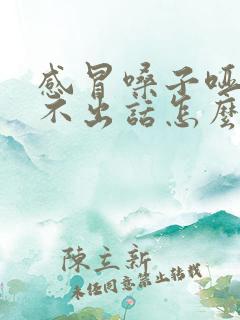 感冒嗓子哑
不出话怎麽
陳立新
未经同意禁止转载